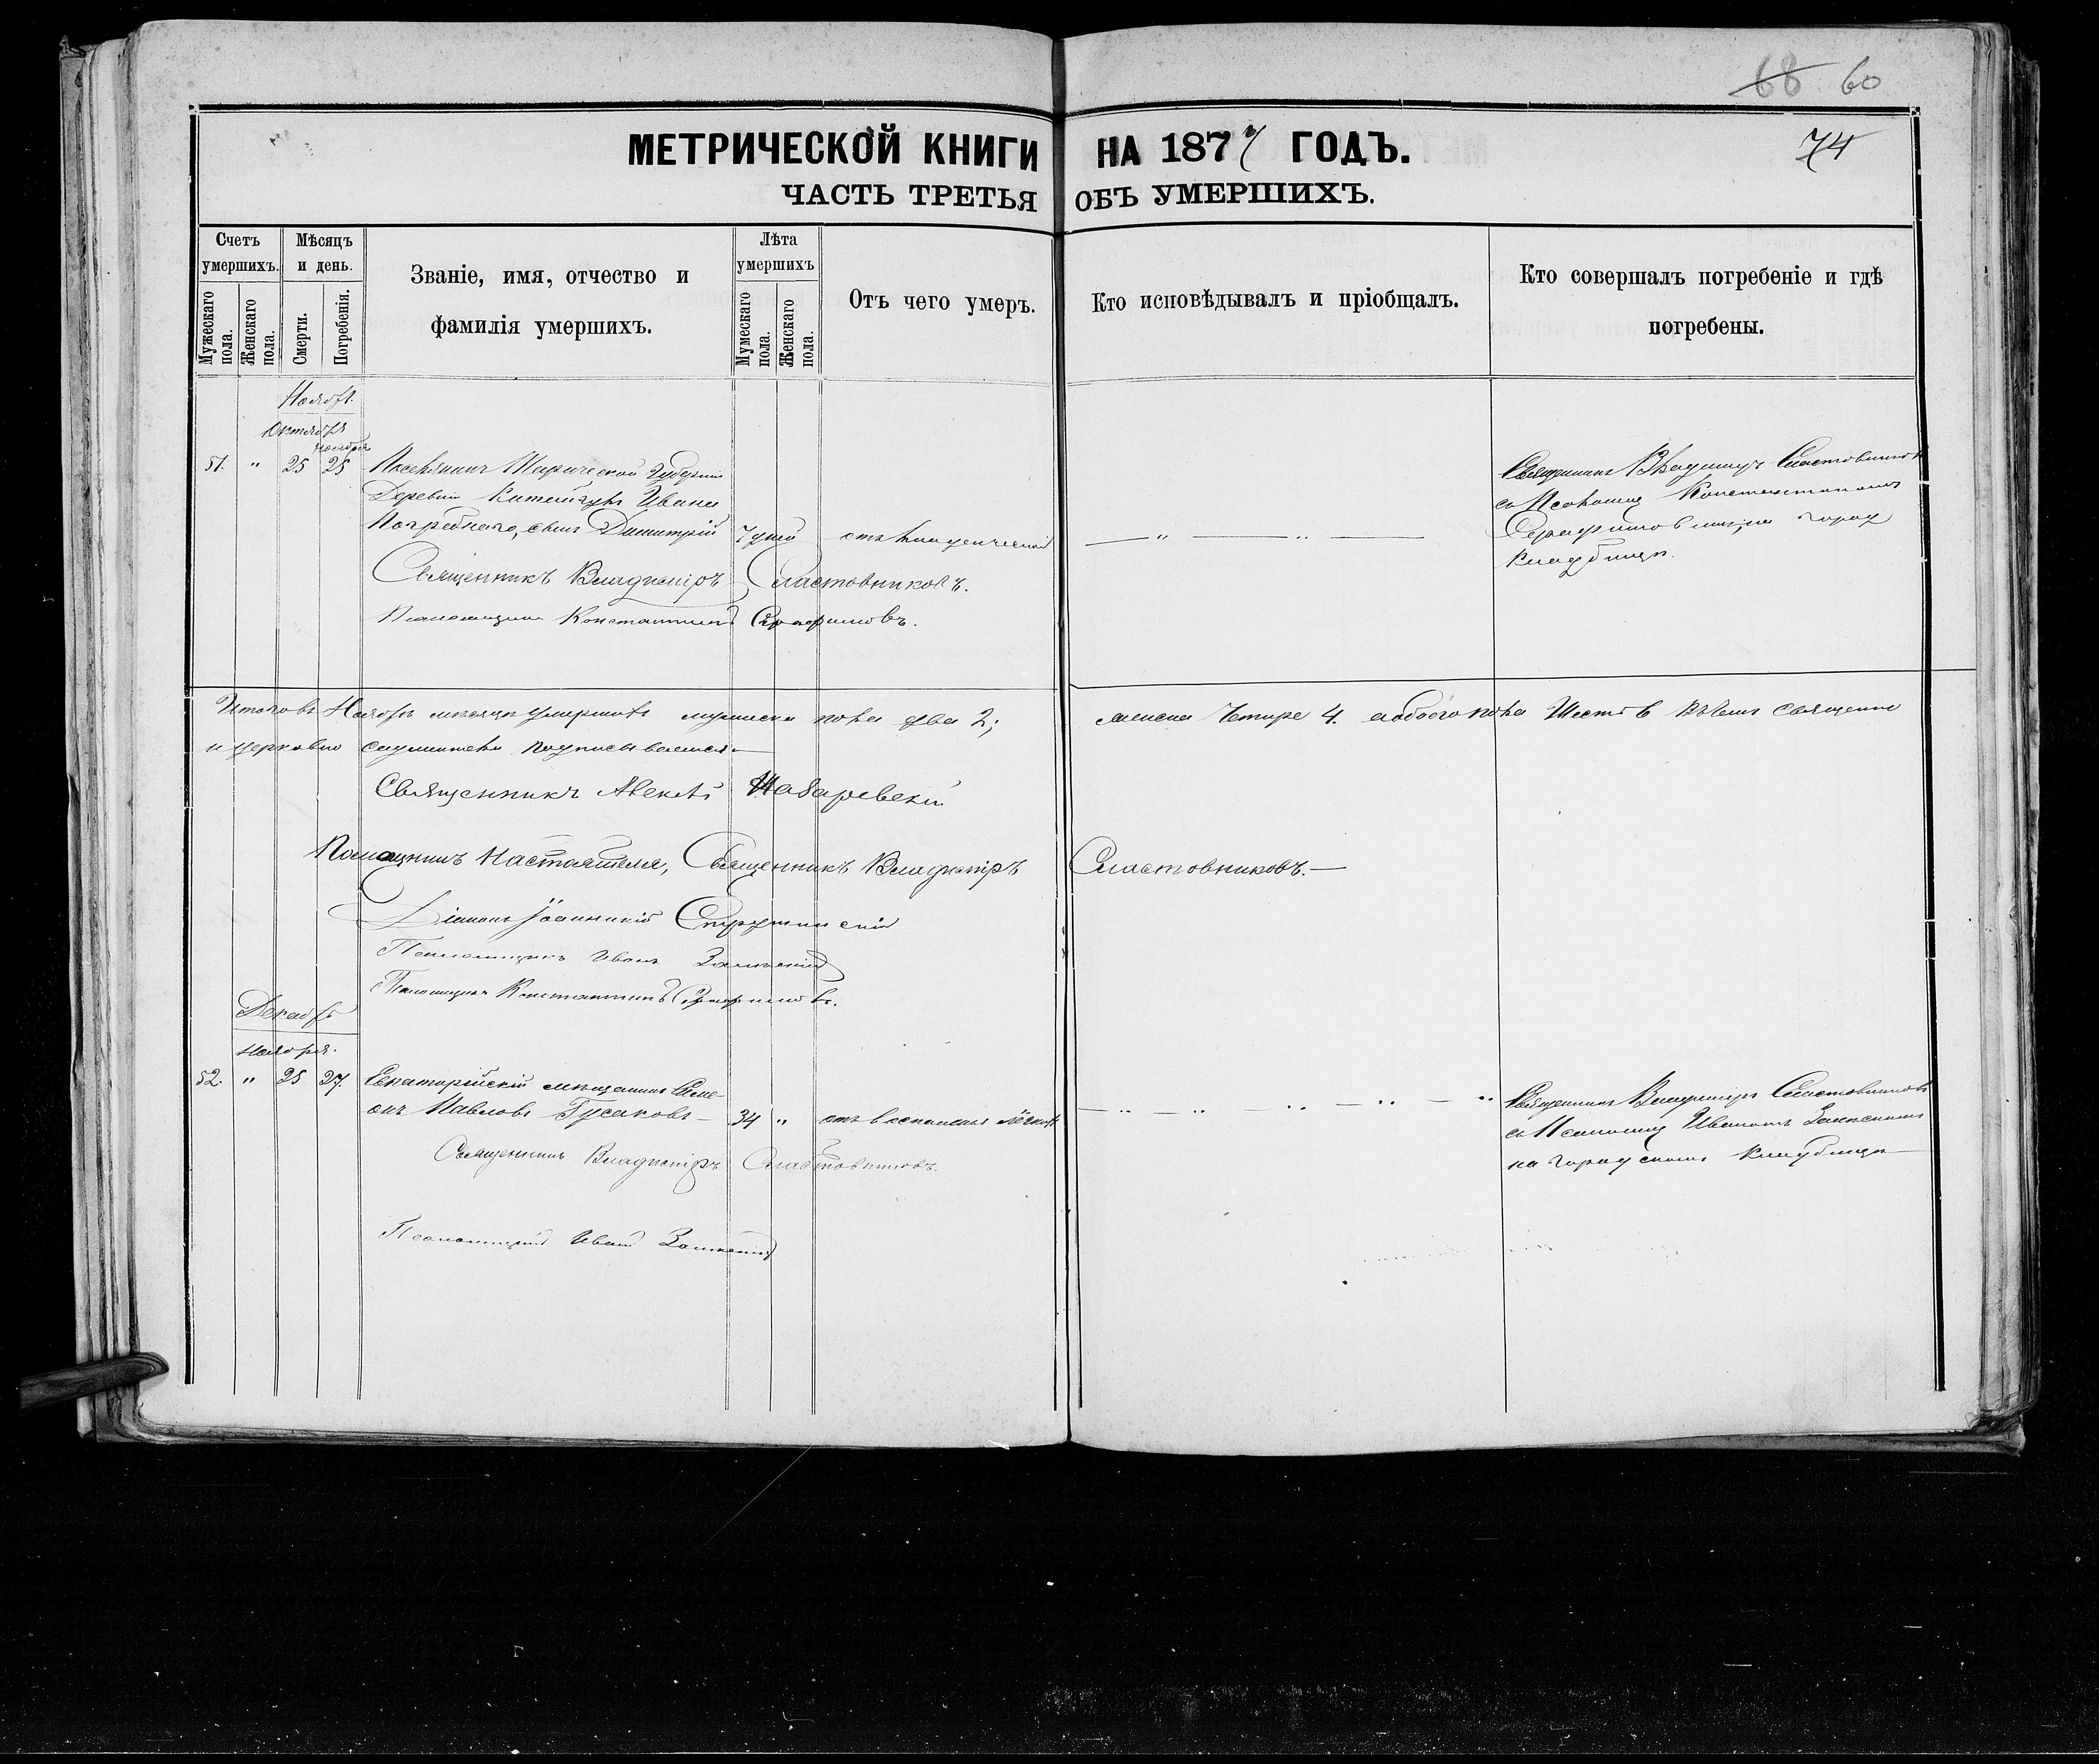 68 60
74
МЕТРИЧЕСКОЙ КНИГИ НА 1877 ГОДЪ.
ЧАСТЬ ТРЕТЬЯ ОБЪ УМЕРШИХЪ.
Счетъ умершихъ.
Мѣсяцъ и день.
Званіе, имя, отчество и фамилія умершихъ.
Лѣта умершихъ
Отъ чего умеръ.
Кто исповѣдывалъ и пріобщалъ.
Кто совершалъ погребеніе и гдѣ погребены.
Мужескаго пола.
Женскаго пола.
Смерти.
Погребенія.
Мужескаго пола.
Женскаго пола.
Ноябрь
Октября
Ноября
51. " 25 25 Поселянинъ Таврической Губерніи
Деревни Ивана
сынъ Димитрій 7 дней
Священникъ Владимиръ Сластовниковъ
Константиномъ
Серафимовымъ, на город
кладбищѣ.
Священникъ Владиміръ Сластовниковъ.
Псаломщикъ Константинъ Серафимовъ.
Итого въ Ноябрѣ мѣсяцѣ умершихъ мужеска пола два 2; женска четыре 4. а обоего пола Шесть въ чемъ священно
и церковно служители подписываемся
Священникъ Алексѣй
Помощникъ Настоятеля, Священникъ Владиміръ Сластовниковъ.
Діаконъ Іоанникій
Псаломщикъ Иванъ
Псаломщикъ Константинъ Серафимовъ.
Декабрь
Ноября.
52. " 25 27. Евпаторійскій мѣщанинъ Симе-
онъ Павловъ Гусаковъ 34 " отъ воспаленія лёгкихъ
Священникъ Владиміръ Сластовниковъ
съ Псаломщ Иваномъ
на городскомъ кладбищѣ
Священникъ Владиміръ Сластовниковъ.
Псаломщикъ Иванъ